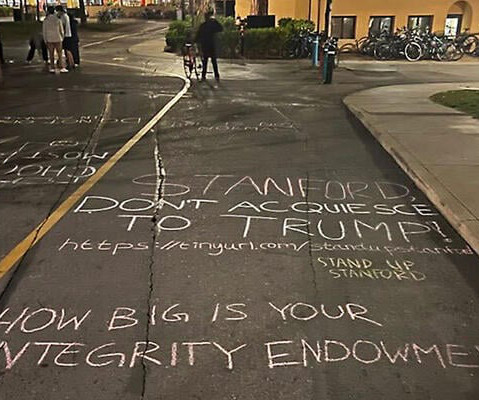 STANFORD,
DON'T ACQUIESCE
TO TRUMP!
https://tinyurl.com/standupstanford
STAND UP
STANFORD
HOW BIG IS YOUR
INTEGRITY ENDOWME